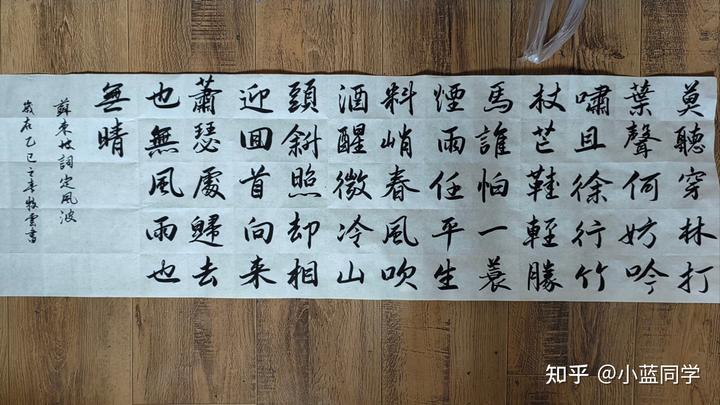 莫聽穿林打
葉聲何妨吟
嘯且徐行竹
杖芒鞋輕勝
馬誰怕一蓑
煙雨任平生
料峭春風吹
酒醒微冷山
頭斜照却相
迎回首向来
蕭瑟處歸去
也無風雨也
無晴
蘇東坡詞定風波
歲在乙巳之春牧雲書
知乎 @小蓝同学